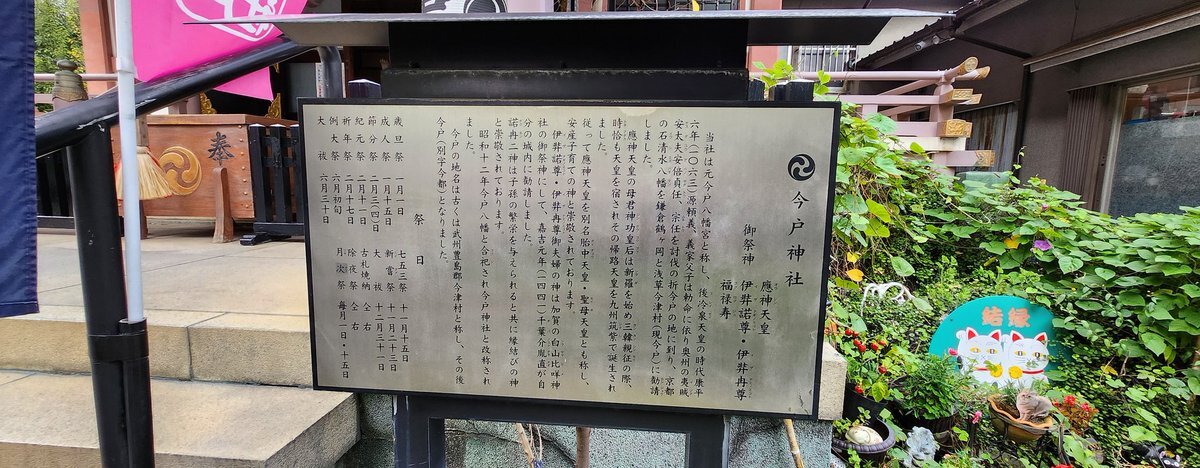 今戸神社
御祭神
應神天皇
伊弉諾尊・伊弉冉尊
福禄寿
当社は元今戸八幡宮と称し、後冷泉天皇の時代康平
六年(一〇六三)源頼義、義家父子は勅命に依り奥州の夷賊
安大夫安倍貞任、宗任を討伐の折今戸の地に到り、京都
の石清水八幡を鎌倉鶴ヶ岡と浅草今津村(現今戸)に勧請
しました。
應神天皇の母君神功皇后は新羅を始め三韓親征の際、
時恰も天皇を宿されその帰路天皇を九州筑紫で誕生され
ました。
従って應神天皇を別名胎中天皇・聖母天皇とも称し、
安産子育ての神と崇敬されております。
伊弉諾尊・伊弉冉尊御夫婦の神は加賀の白山比咩神
社の御祭神にして、嘉吉元年(一四四一)千葉介胤直が自
分の城内に勧請しました。
諾冉二神は子孫の繁栄を与えられると共に縁結びの神
と崇敬されております。
昭和十二年今戸八幡と合祀され今戸神社と改称され
ました。
今戸の地名は古くは武州豊島郡今津村と称し、その後
今戸(別字今都)となりました。
祭日
歳旦祭 一月一日
成人祭 一月十五日
節分祭 二月三(四)日
紀元祭 二月十一日
祈年祭 二月十七日
例大祭 六月初旬
大祓 六月三十日
七五三祭 十一月十五日
新嘗祭 十一月二十三日
大祓 十二月三十一日
古札焼納 仝右
除夜祭 仝右
月次祭 毎月一日・十五日
奉
結縁